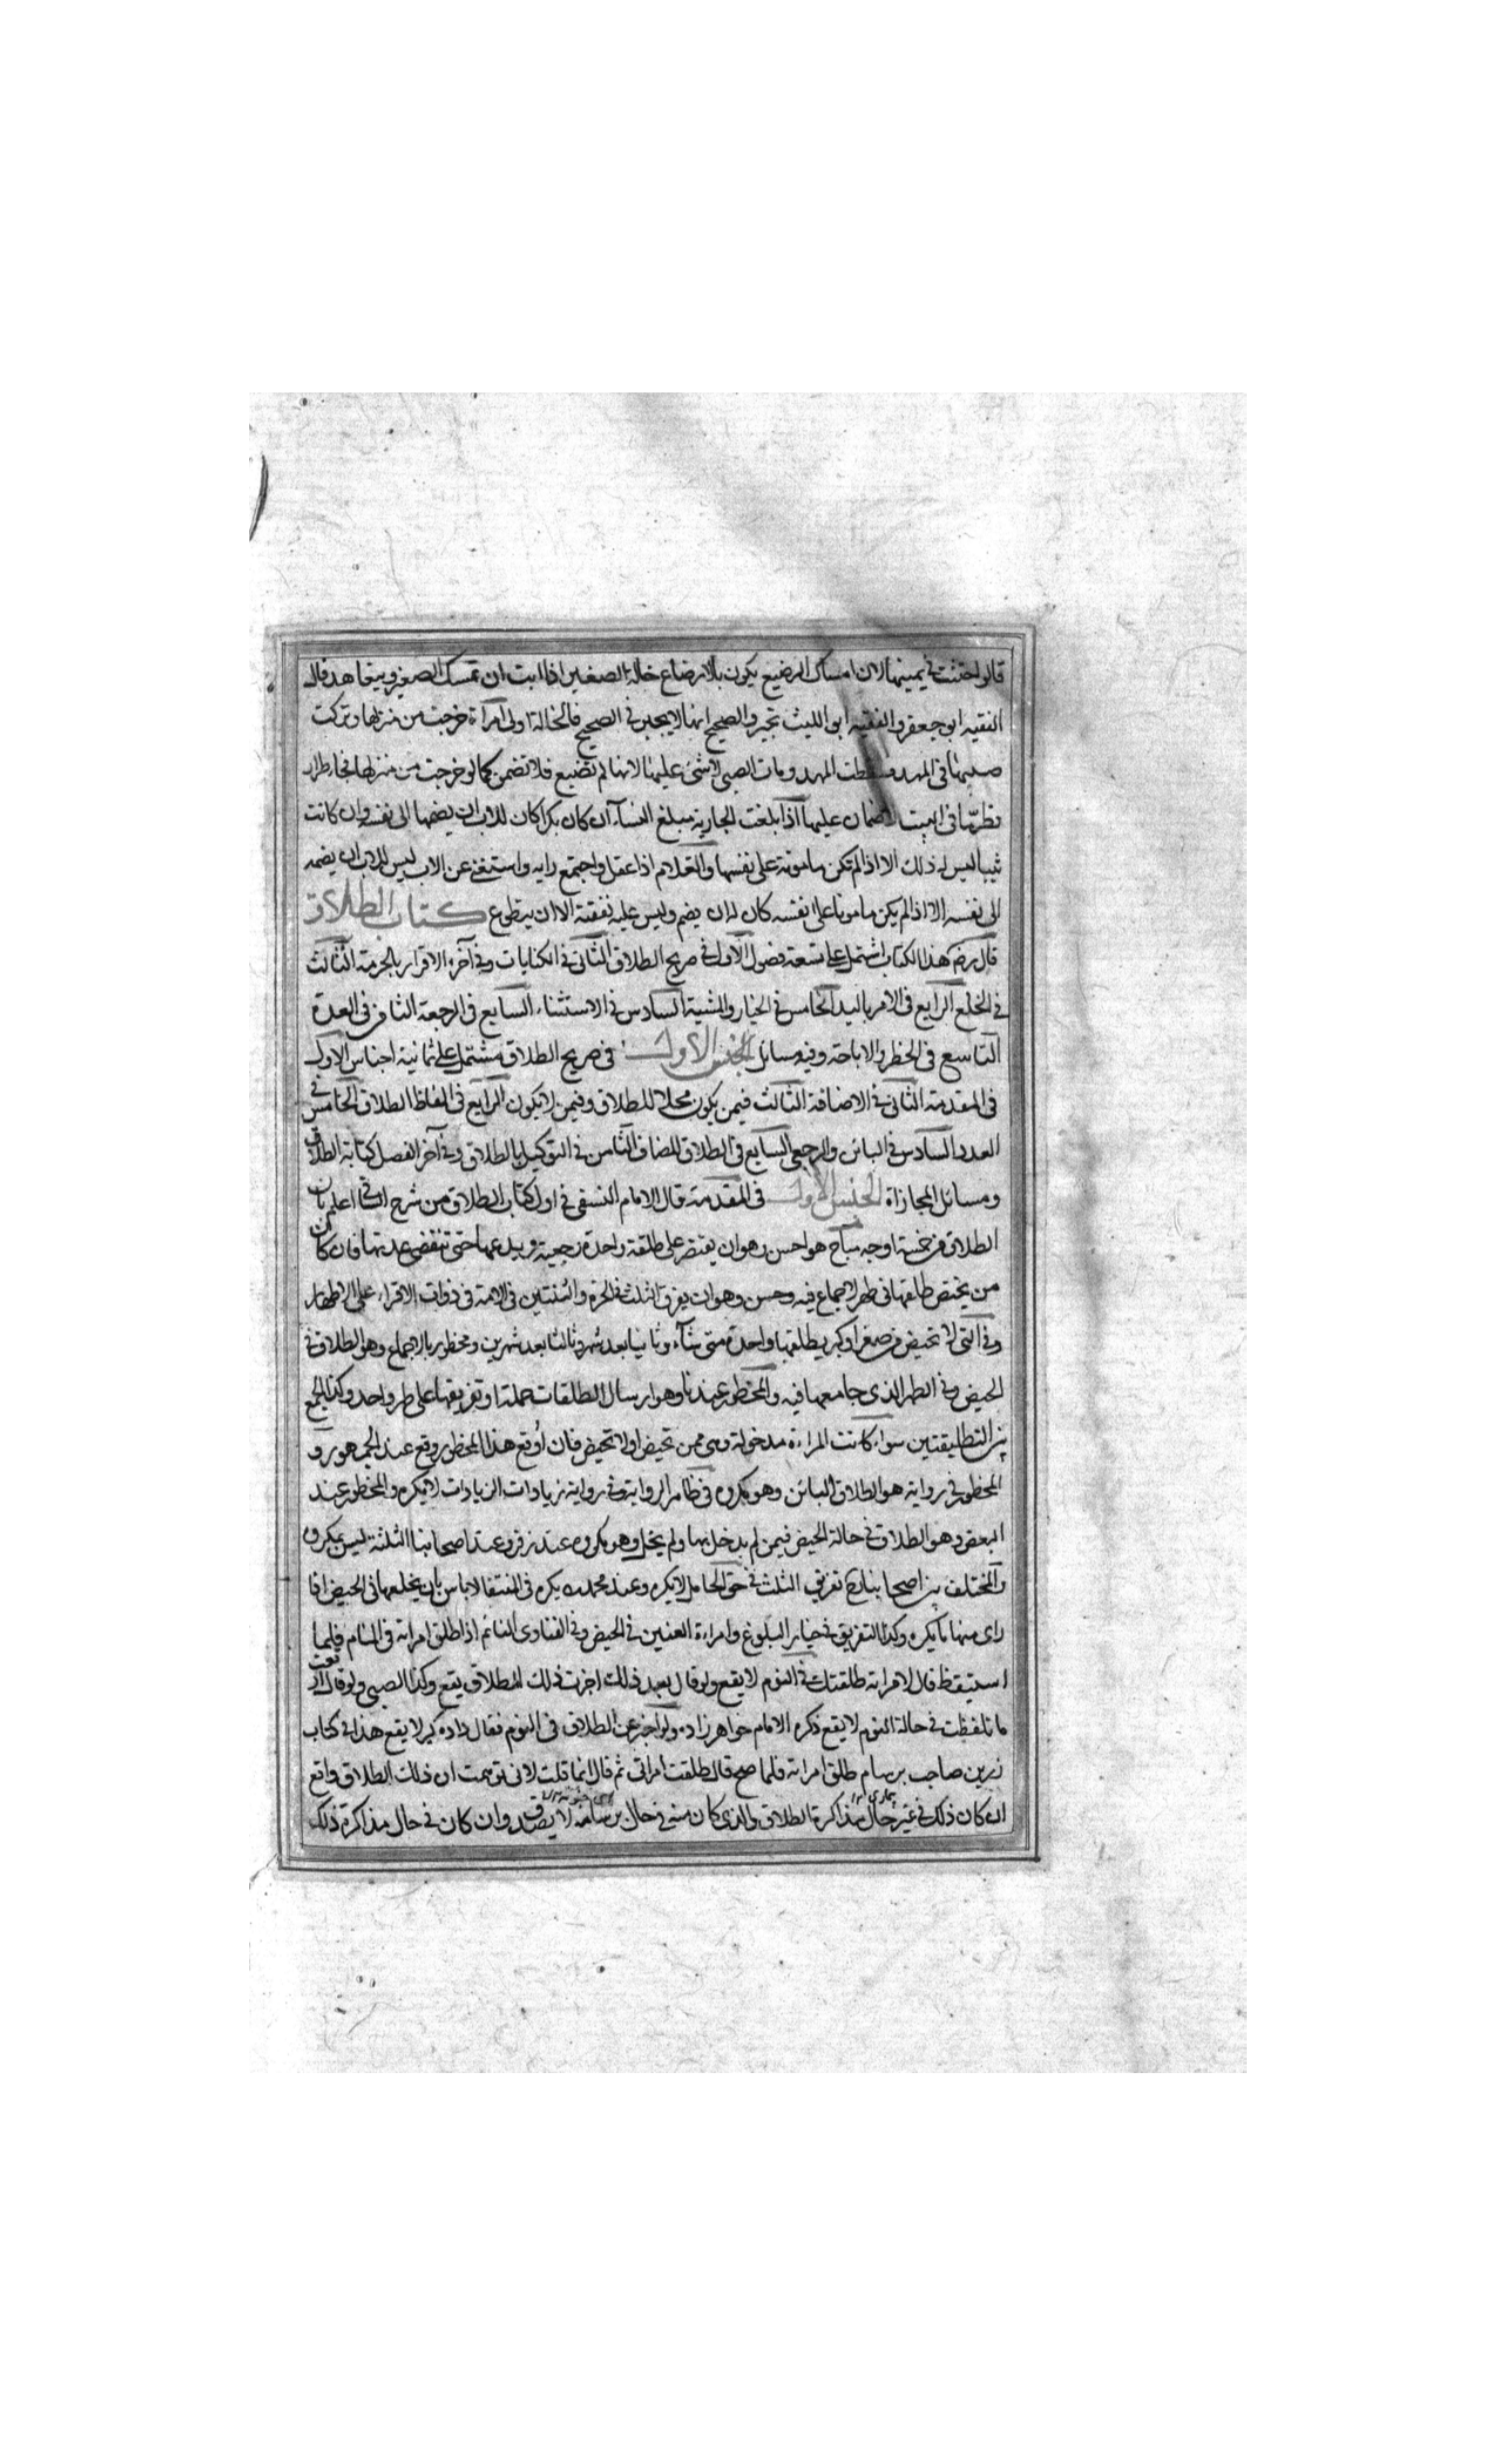 قالوا حنثت في يمينها لان امساك الرضيع يكون بالارضاع خالة الصغير اذا ابت ان تمسك الصغير ويتعاهد قال
الفقيه ابو جعفر والفقيه ابو الليث تجبر والصحيح انها لا يجبر في الصحيح فالخالة اولى امرأة خرجت من منزلها وتركت
صبيها في المهد وسقطت المهد ومات الصبي لا شئ عليها لانها لم تضيع فلا تضمن كما لو خرجت من منزلها فجاء طرار
فطر ما في البيت لا ضمان عليها اذا بلغت الجارية مبلغ النساء ان كان بكرا كان للاب ان يضمها الى نفسه وان كانت
ثيبا ليس له ذلك الا اذا لم تكن مامونة على نفسها والغلام اذا عقل واجتمع رايه واستغنى عن الاب ليس للاب ان يضمه
الى نفسه الا اذا لم يكن مامونا على نفسه كان له ان يضم وليس عليه نفقته الا ان يتطوع كتاب الطلاق
قال رضه هذا الكتاب اشتمل على تسعة فصول الاول في صريح الطلاق الثاني في الكنايات وفي آخره الاقرار بالحرمة الثالث
في الخلع الرابع في الامر باليد الخامس في الخيار والمشية السادس في الاستثناء السابع في الرجعة الثامن في العدة
التاسع في الحظر والاباحة وفيه مسائل الجنس الاول في صريح الطلاق مشتمل على ثمانية اجناس الاول
في المقدمة الثاني في الاضافة الثالث فيمن يكون محلا للطلاق وفيمن لا يكون الرابع في الفاظ الطلاق الخامس في
العدد السادس في البائن والرجعي السابع في الطلاق المضاف الثامن في التوكيل بالطلاق وفي آخر الفصل كتابة الطلاق
ومسائل المجازاة الجنس الاول في المقدمة قال الامام النسفي في اول كتاب الطلاق من شرح الشافي اعلم بان
الطلاق في خمسة اوجه مباح هو احسن وهو ان يقتصر على طلقة واحدة رجعية ويدعها حتى تنقضي عدتها فان كان
من يختص طلقها في طهر لا جماع فيه وحسن وهو ان يفرق الثلث في الحرة والثنتين في الامة في ذوات الاقراء على الاطهار
وفي التي لا تحيض من صغر او كبر يطلقها واحدة متى شاء وثانيا بعد شهر وثالثا بعد شهرين ومحظور بالاجماع وهو الطلاق في
الحيض وفي الطهر الذي جامعها فيه والمحظور عندنا وهو ارسال الطلقات جملة او تفريقها على طهر واحد وكذا الجمع
بين التطليقتين سواء كانت المراءة مدخولة وهي ممن تحيض او لا تحيض فان أوقع هذا المحظور وقع عند الجمهور و
المحظور في رواية هو الطلاق البائن وهو مكروه في ظاهر الرواية وفي رواية زيادات الزيادات لا يكره والمحظور عند
البعض وهو الطلاق في حالة الحيض فيمن لم يدخل بها ولم يخل وهو مكروه عند زفر وعند اصحابنا الثلثة ليس بمكروه
والمختلف بين اصحابنا رح تفريق الثلث في حق الحامل لا يكره وعند محمد رح يكره في المنتقى لا باس بان يخلعها في الحيض اذا
راى منها ما يكره وكذا التفريق في خيار البلوغ وامراءة العنين في الحيض وفي الفتاوى النائم اذا طلق امراته في المنام فلما
استيقظ قال لامراته طلقتك في النوم لا يقع ولو قال بعد ذلك اجزت ذلك الطلاق يقع وكذا الصبي ولو قال اوقعت
ما تلفظت في حالة النوم لا يقع ذكره الامام خواهر زاده ولو اخبر عن الطلاق في النوم فقال داده كير لا يقع هذا في كتاب
زرين صاحب برسام طلق امراته فلما صح قال طلقت امراتي ثم قال انما قلت لاني توهمت ان ذلك الطلاق واقع
ان كان ذلك في غير حال مذاكرة الطلاق والذي كان منه في حال برسامه لا يصدق وان كان في حال مذاكرة ذلك